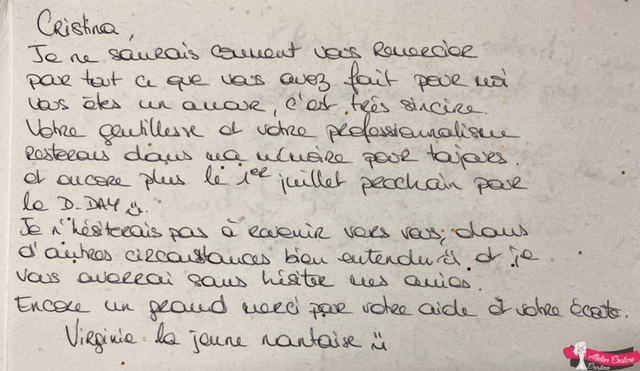 Cristina,
Je ne saurais comment vous remercier
pour tout ce que vous avez fait pour moi
vous êtes un amour, c'est très sincère.
Votre gentillesse et votre professionnalisme
resterons dans ma mémoire pour toujours.
et encore plus le 1er juillet prochain pour
le D-DAY ☺.
Je n'hésiterais pas à revenir vers vous, dans
d'autres circonstances bien entendu ☺. et je
vous enverrai sans hésiter mes amies.
Encore un grand merci par votre aide et votre écoute.
Virginie la jeune nantaise ☺
Atelier Couture
Cristina